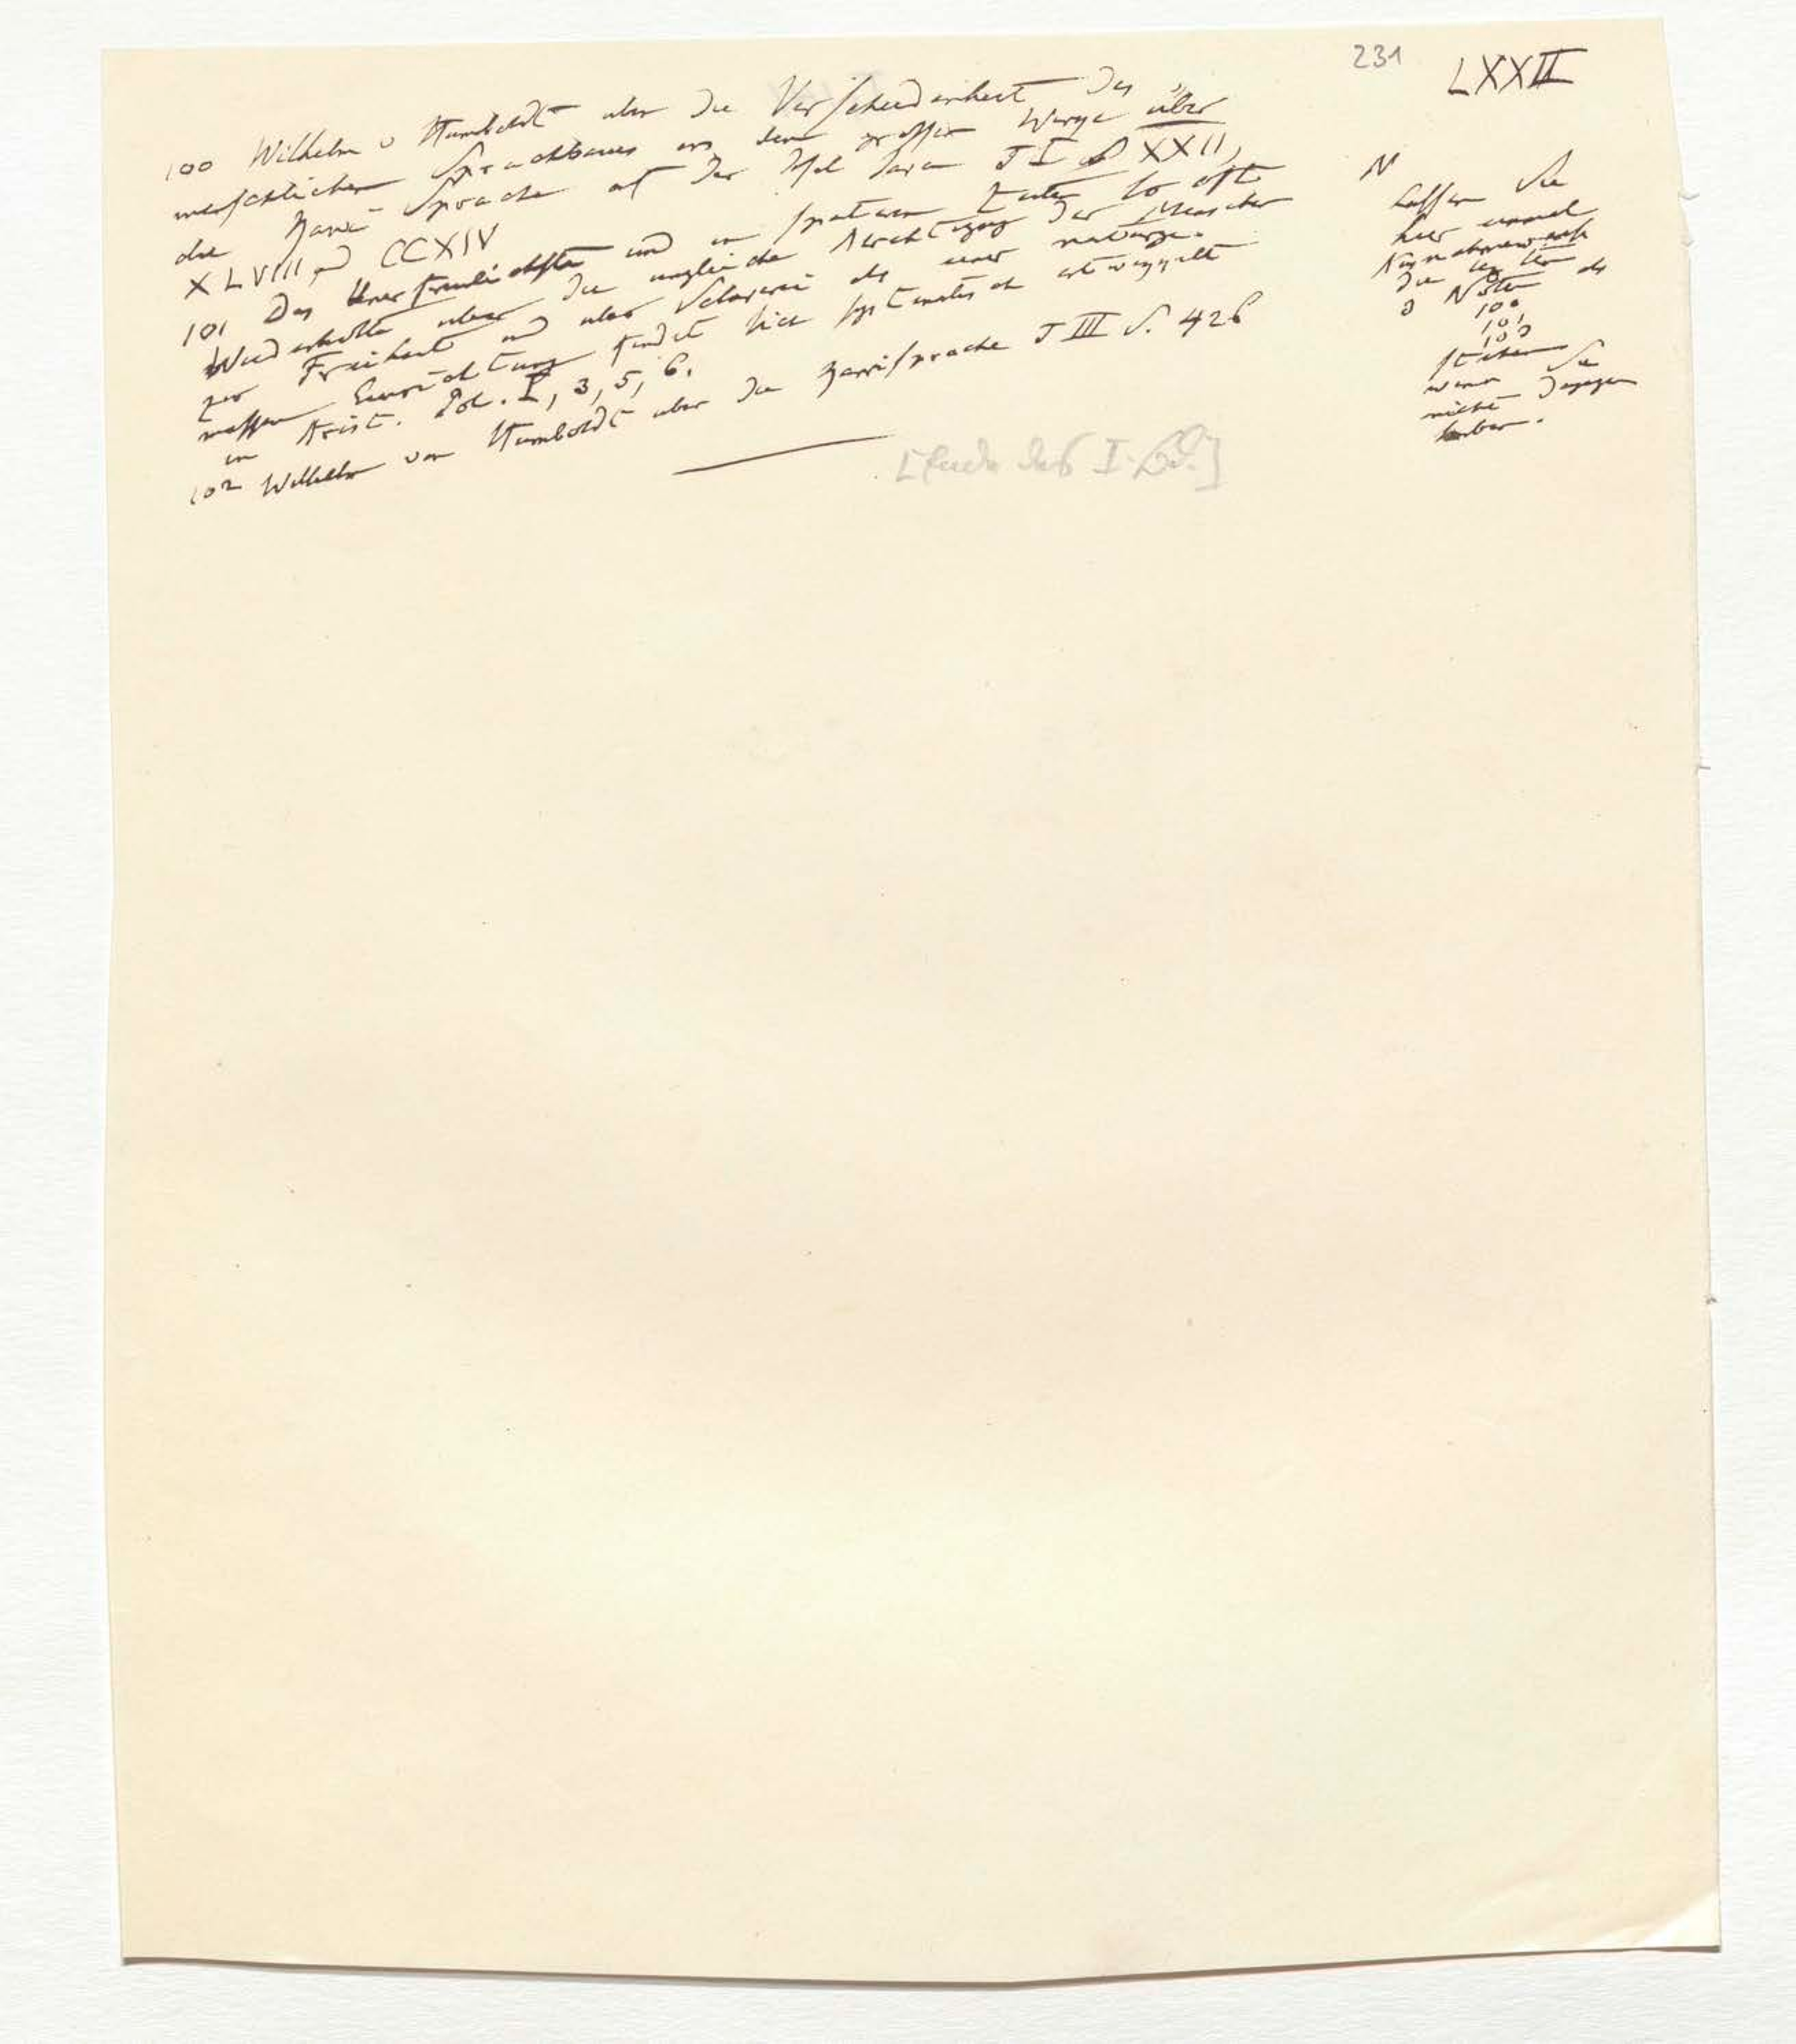 231
LXXII
100 Wilhelm v Humboldt über die Verschiedenheit des
menschlichen Sprachbaues in dem grossen Werge über
die Kawi Sprache auf der Insel Java T I S XXII,
XLVIII und CCXIV
101 Das Unerfreulichste und in spateren Zeiten so oft
Wiederholte uber die ungleiche Berechtigung der Menschen
zur Freiheit und uber Sclaverei als einer naturge-
massen Einrichtung findet sich systematisch entwiggelt
in Arist. Pol. I, 3, 5, 6.
102 Wilhelm von Humboldt uber die Kawisprache T III S. 426
[Ende des I. Bd.]
N
Lassen Sie
hier einmal
die
3 Noten als
100
101
102
stehen Sie
wenn
nichts dagegen
haben.